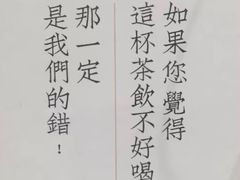 如果您覺得
這杯茶飲不好喝
那一定
是我們的錯！